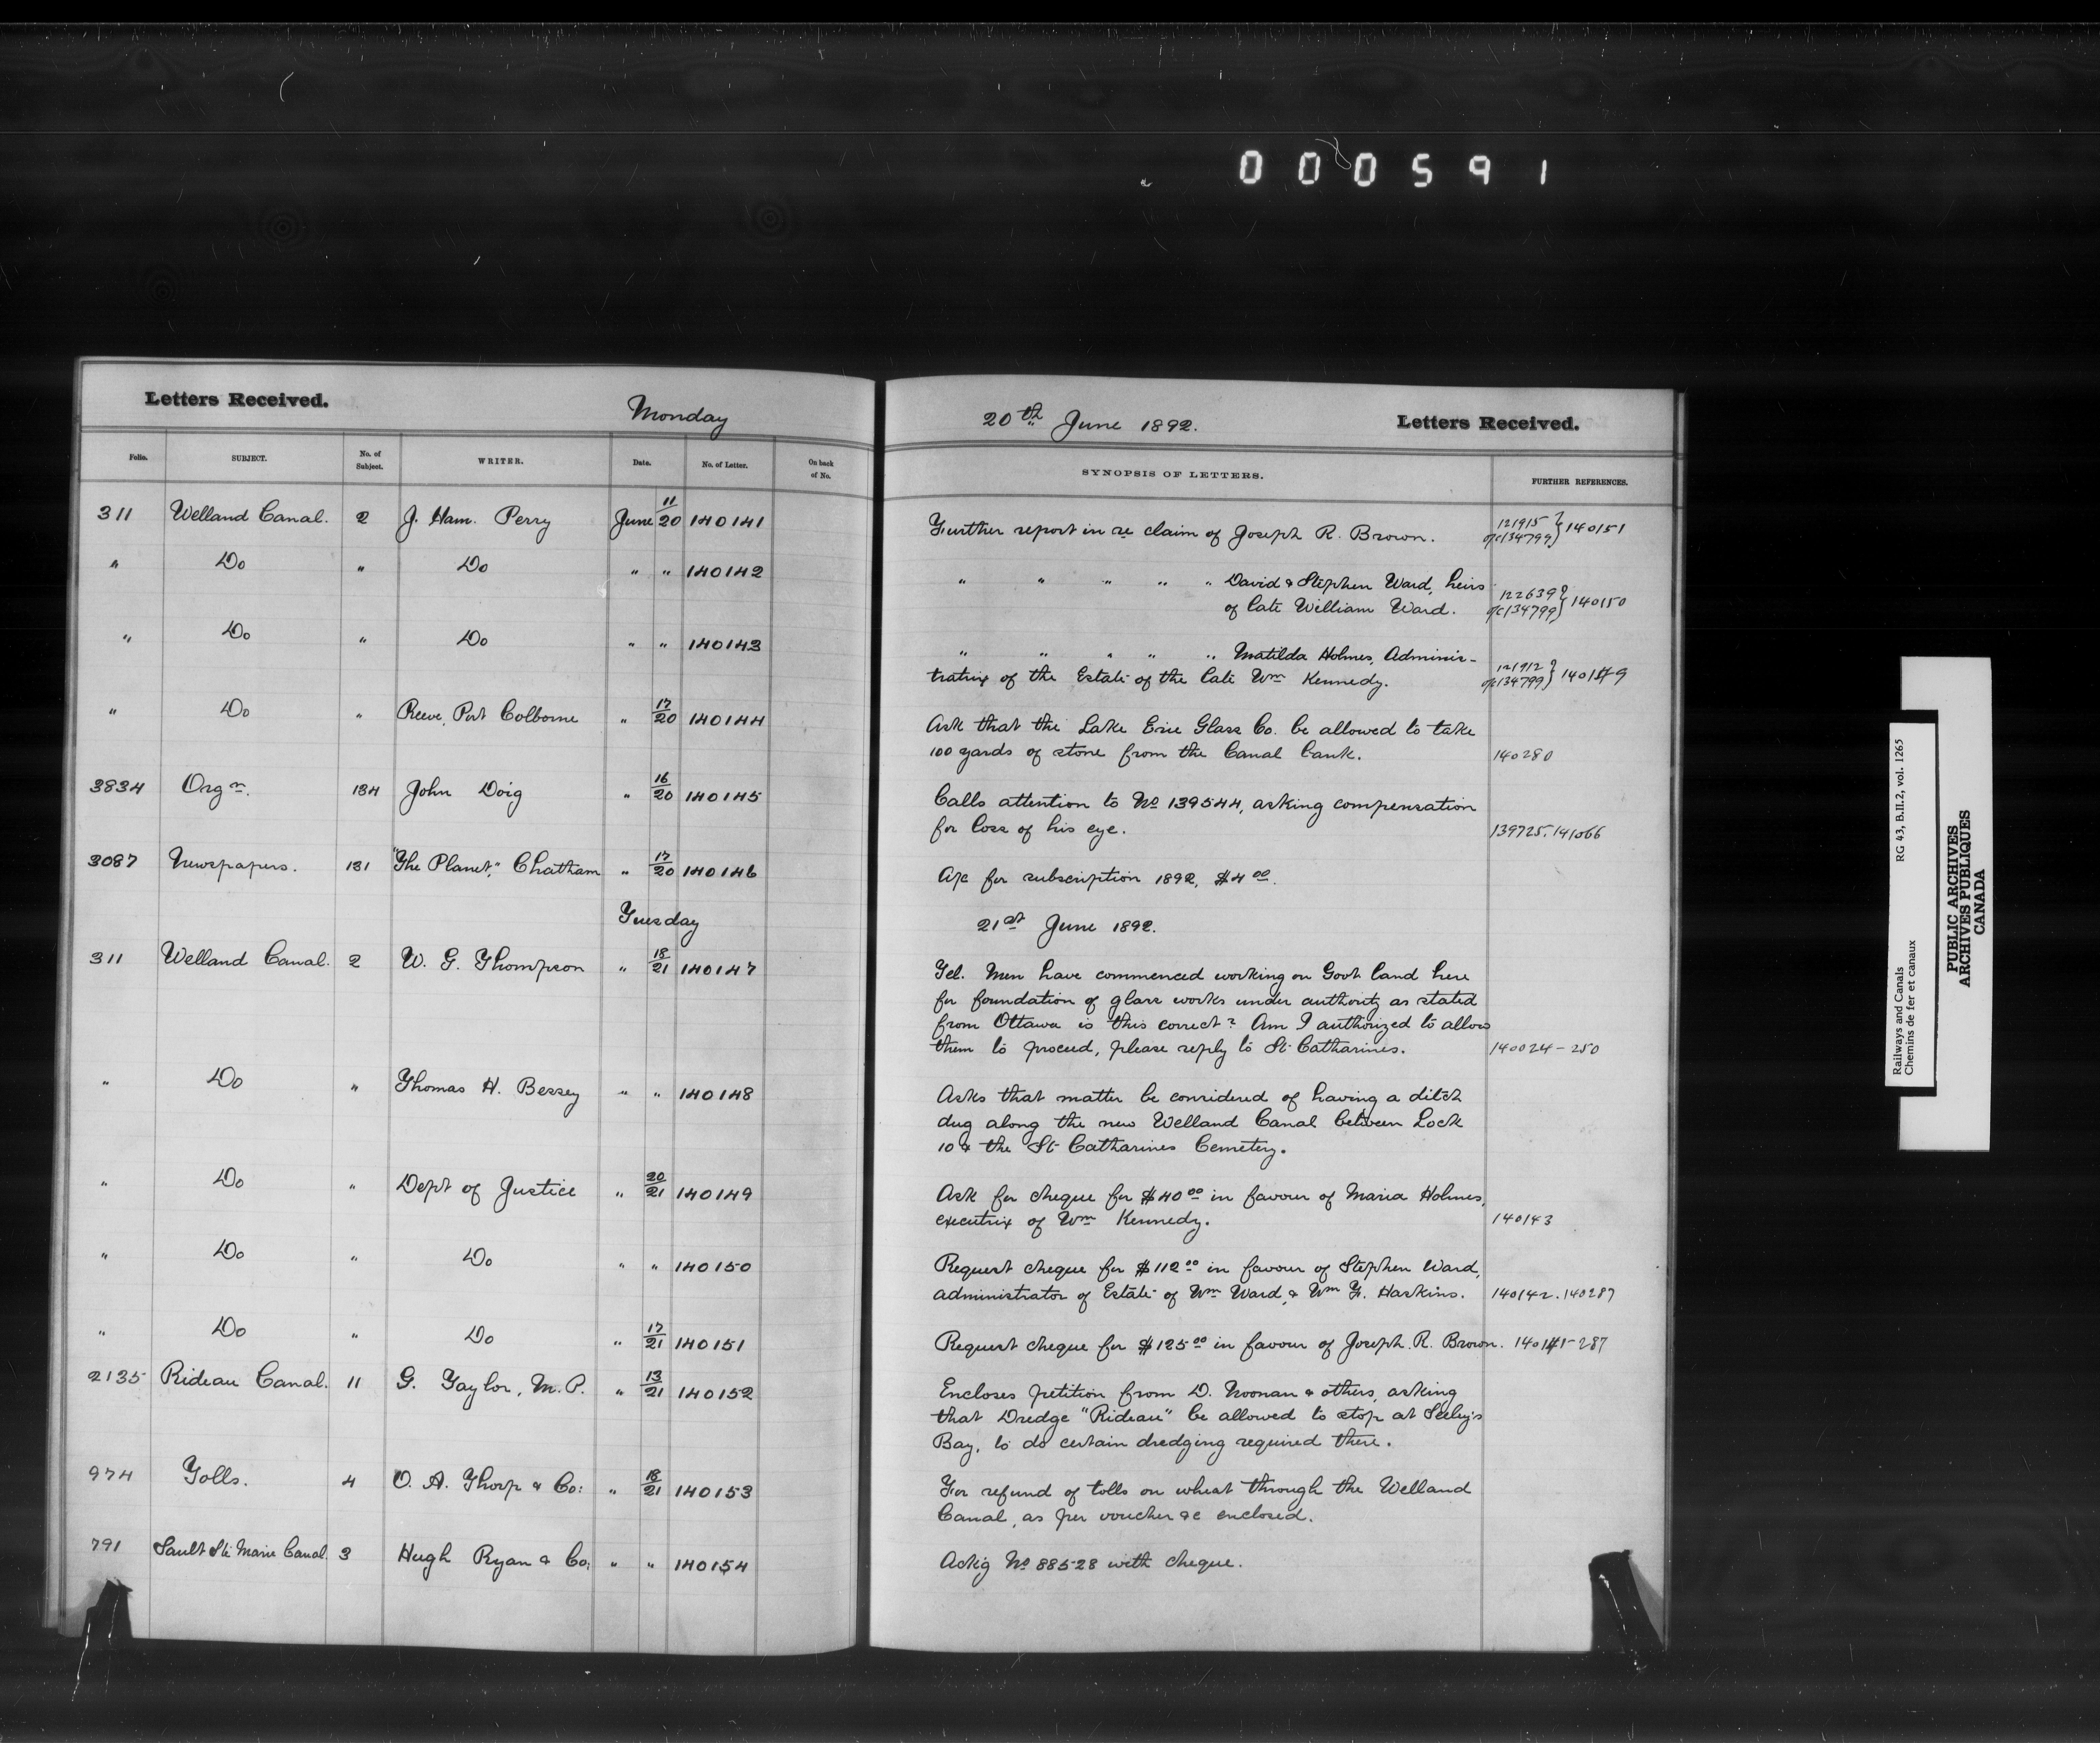 000591
Letters Received. Monday
20th June 1892. Letters Received.
Folio. SUBJECT. No. of Subject. WRITER. Date. No. of Letter. On back of No. SYNOPSIS OF LETTERS. FURTHER REFERENCES.
311 Welland Canal. 2 J. Ham. Perry June 11/20 140141 Further report in re claim of Joseph R. Brown. 121915 o/c 134799 } 140151
" Do " Do " " 140142 " " " " " David & Stephen Ward, heirs
of late William Ward. 122639 o/c 134799 } 140150
" Do " Do " " 140143 " " " " " Matilda Holmes, Adminis-
tratrix of the Estate of the late Wm Kennedy. 121912 o/c 134799 } 140149
" Do " Reeve, Port Colborne " 17/20 140144 Ask that the Lake Erie Glass Co. be allowed to take
100 yards of stone from the Canal bank. 140280
3834 Orgn. 134 John Doig " 16/20 140145 Calls attention to No 139544, asking compensation
for loss of his eye. 139725. 141066
3087 Newspapers. 131 "The Planet," Chatham " 17/20 140146 A/c for subscription 1892, $4 00.
Tuesday 21st June 1892.
311 Welland Canal. 2 W. G. Thompson " 18/21 140147 Tel. Men have commenced working on Govt land here
for foundation of glass works under authority as stated
from Ottawa is this correct? Am I authorized to allow
them to proceed, please reply to St Catharines. 140024-250
" Do " Thomas H. Bessey " " 140148 Asks that matter be considered of having a ditch
dug along the new Welland Canal between Lock
10 & the St Catharines Cemetery.
" Do " Dept of Justice " 20/21 140149 Ask for cheque for $40 00 in favour of Maria Holmes,
executrix of Wm Kennedy. 140143
" Do " Do " " 140150 Request cheque for $112 00 in favour of Stephen Ward,
administrator of Estate of Wm Ward, & Wm F. Haskins. 140142. 140287
" Do " Do " 17/21 140151 Request cheque for $125 00 in favour of Joseph. R. Brown. 140141-287
2135 Rideau Canal. 11 G. Taylor, M.P. " 13/21 140152 Encloses petition from D. Noonan & others, asking
that Dredge "Rideau" be allowed to stop at Seeley's
Bay, to do certain dredging required there.
974 Tolls. 4 O. A. Thorp & Co: " 18/21 140153 For refund of tolls on wheat through the Welland
Canal, as per voucher &c enclosed.
791 Sault Ste Marie Canal. 3 Hugh Ryan & Co: " " 140154 Ackig No 88528 with cheque.
Railways and Canals RG 43, B.II.2, vol. 1265
Chemins de fer et canaux
PUBLIC ARCHIVES
ARCHIVES PUBLIQUES
CANADA